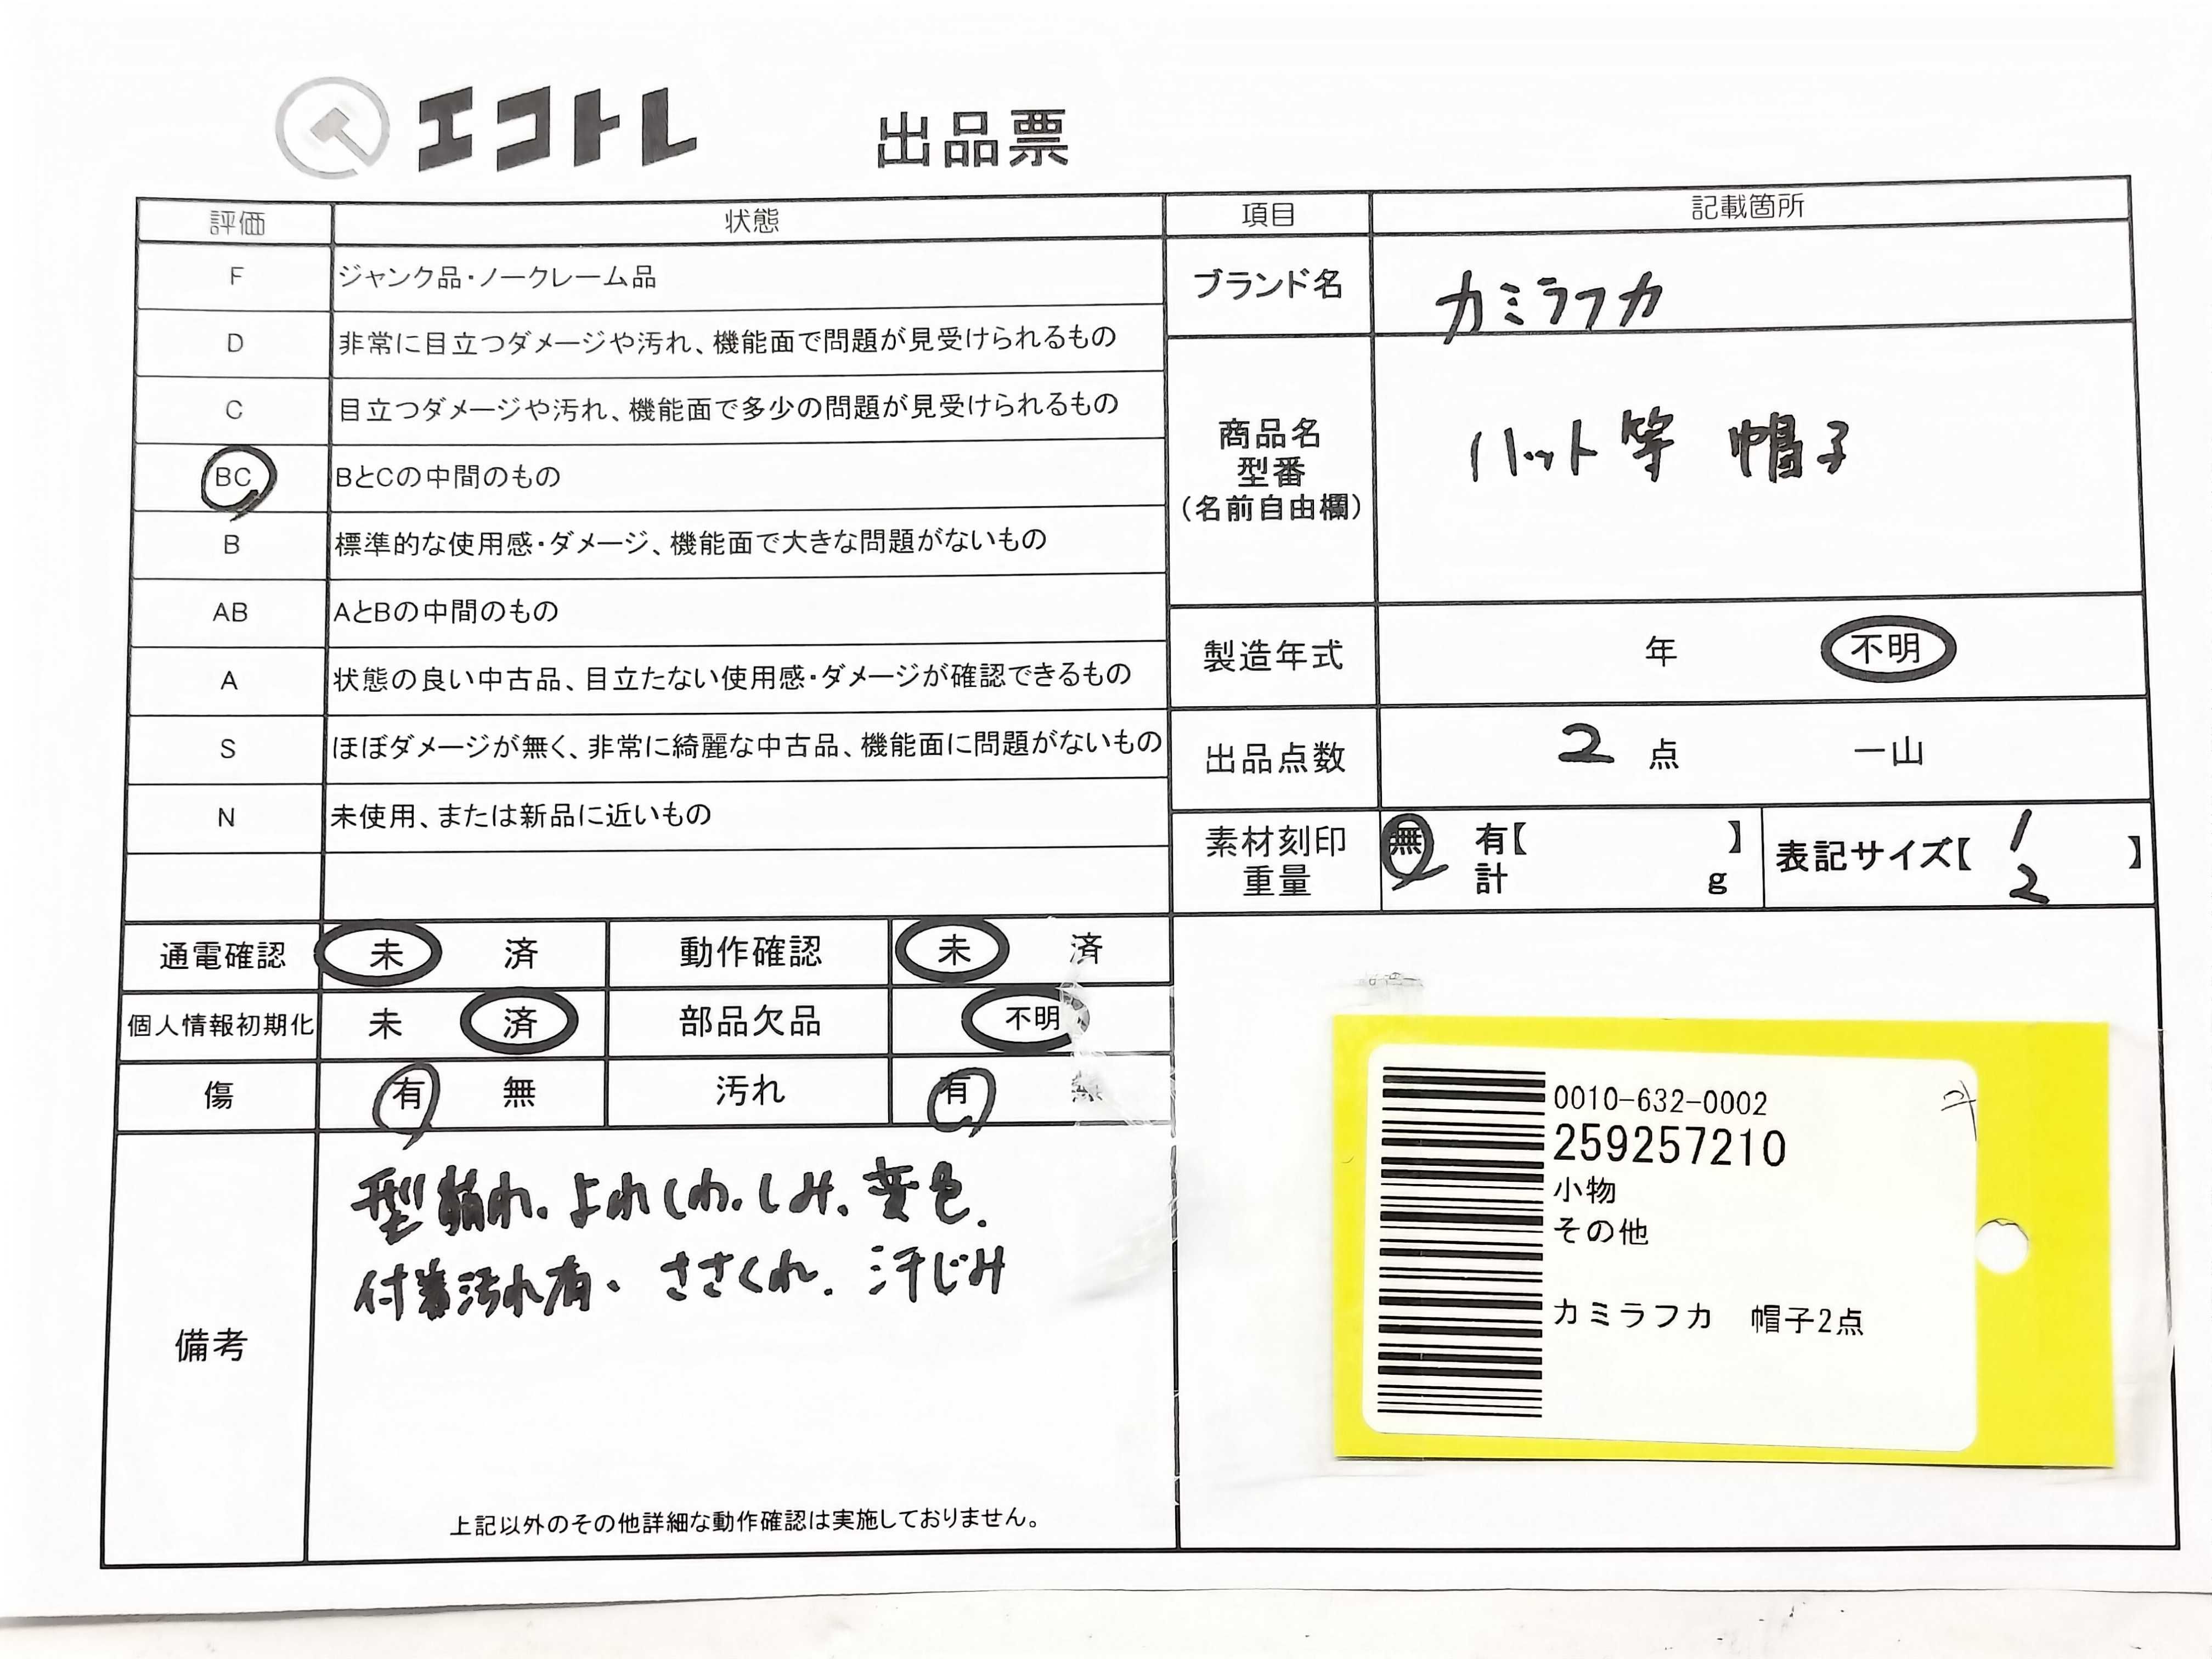 エコトレ 出品票
評価 状態
F ジャンク品・ノークレーム品
D 非常に目立つダメージや汚れ、機能面で問題が見受けられるもの
C 目立つダメージや汚れ、機能面で多少の問題が見受けられるもの
BC BとCの中間のもの
B 標準的な使用感・ダメージ、機能面で大きな問題がないもの
AB AとBの中間のもの
A 状態の良い中古品、目立たない使用感・ダメージが確認できるもの
S ほぼダメージが無く、非常に綺麗な中古品、機能面に問題がないもの
N 未使用、または新品に近いもの
項目 記載箇所
ブランド名 カミラフカ
商品名
型番
(名前自由欄)
ハット等 帽子
製造年式 年 不明
出品点数 2 点 一山
素材刻印
重量
無 有【 】
計 g
表記サイズ【 1
2 】
通電確認 未 済 動作確認 未 済
個人情報初期化 未 済 部品欠品 不明
傷 有 無 汚れ 有
備考
型崩れ、よれしわ、しみ、変色、
付着汚れ有、ささくれ、汗じみ
上記以外のその他詳細な動作確認は実施しておりません。
0010-632-0002
259257210
小物
その他
カミラフカ 帽子2点